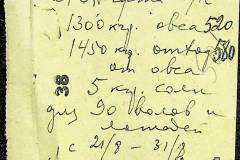 1300 кгр. овса 520
1450 кгр. отход 580
от овса
5 кгр. соли
для 90 волов и
лошадей
с 21/8 - 31/8
38